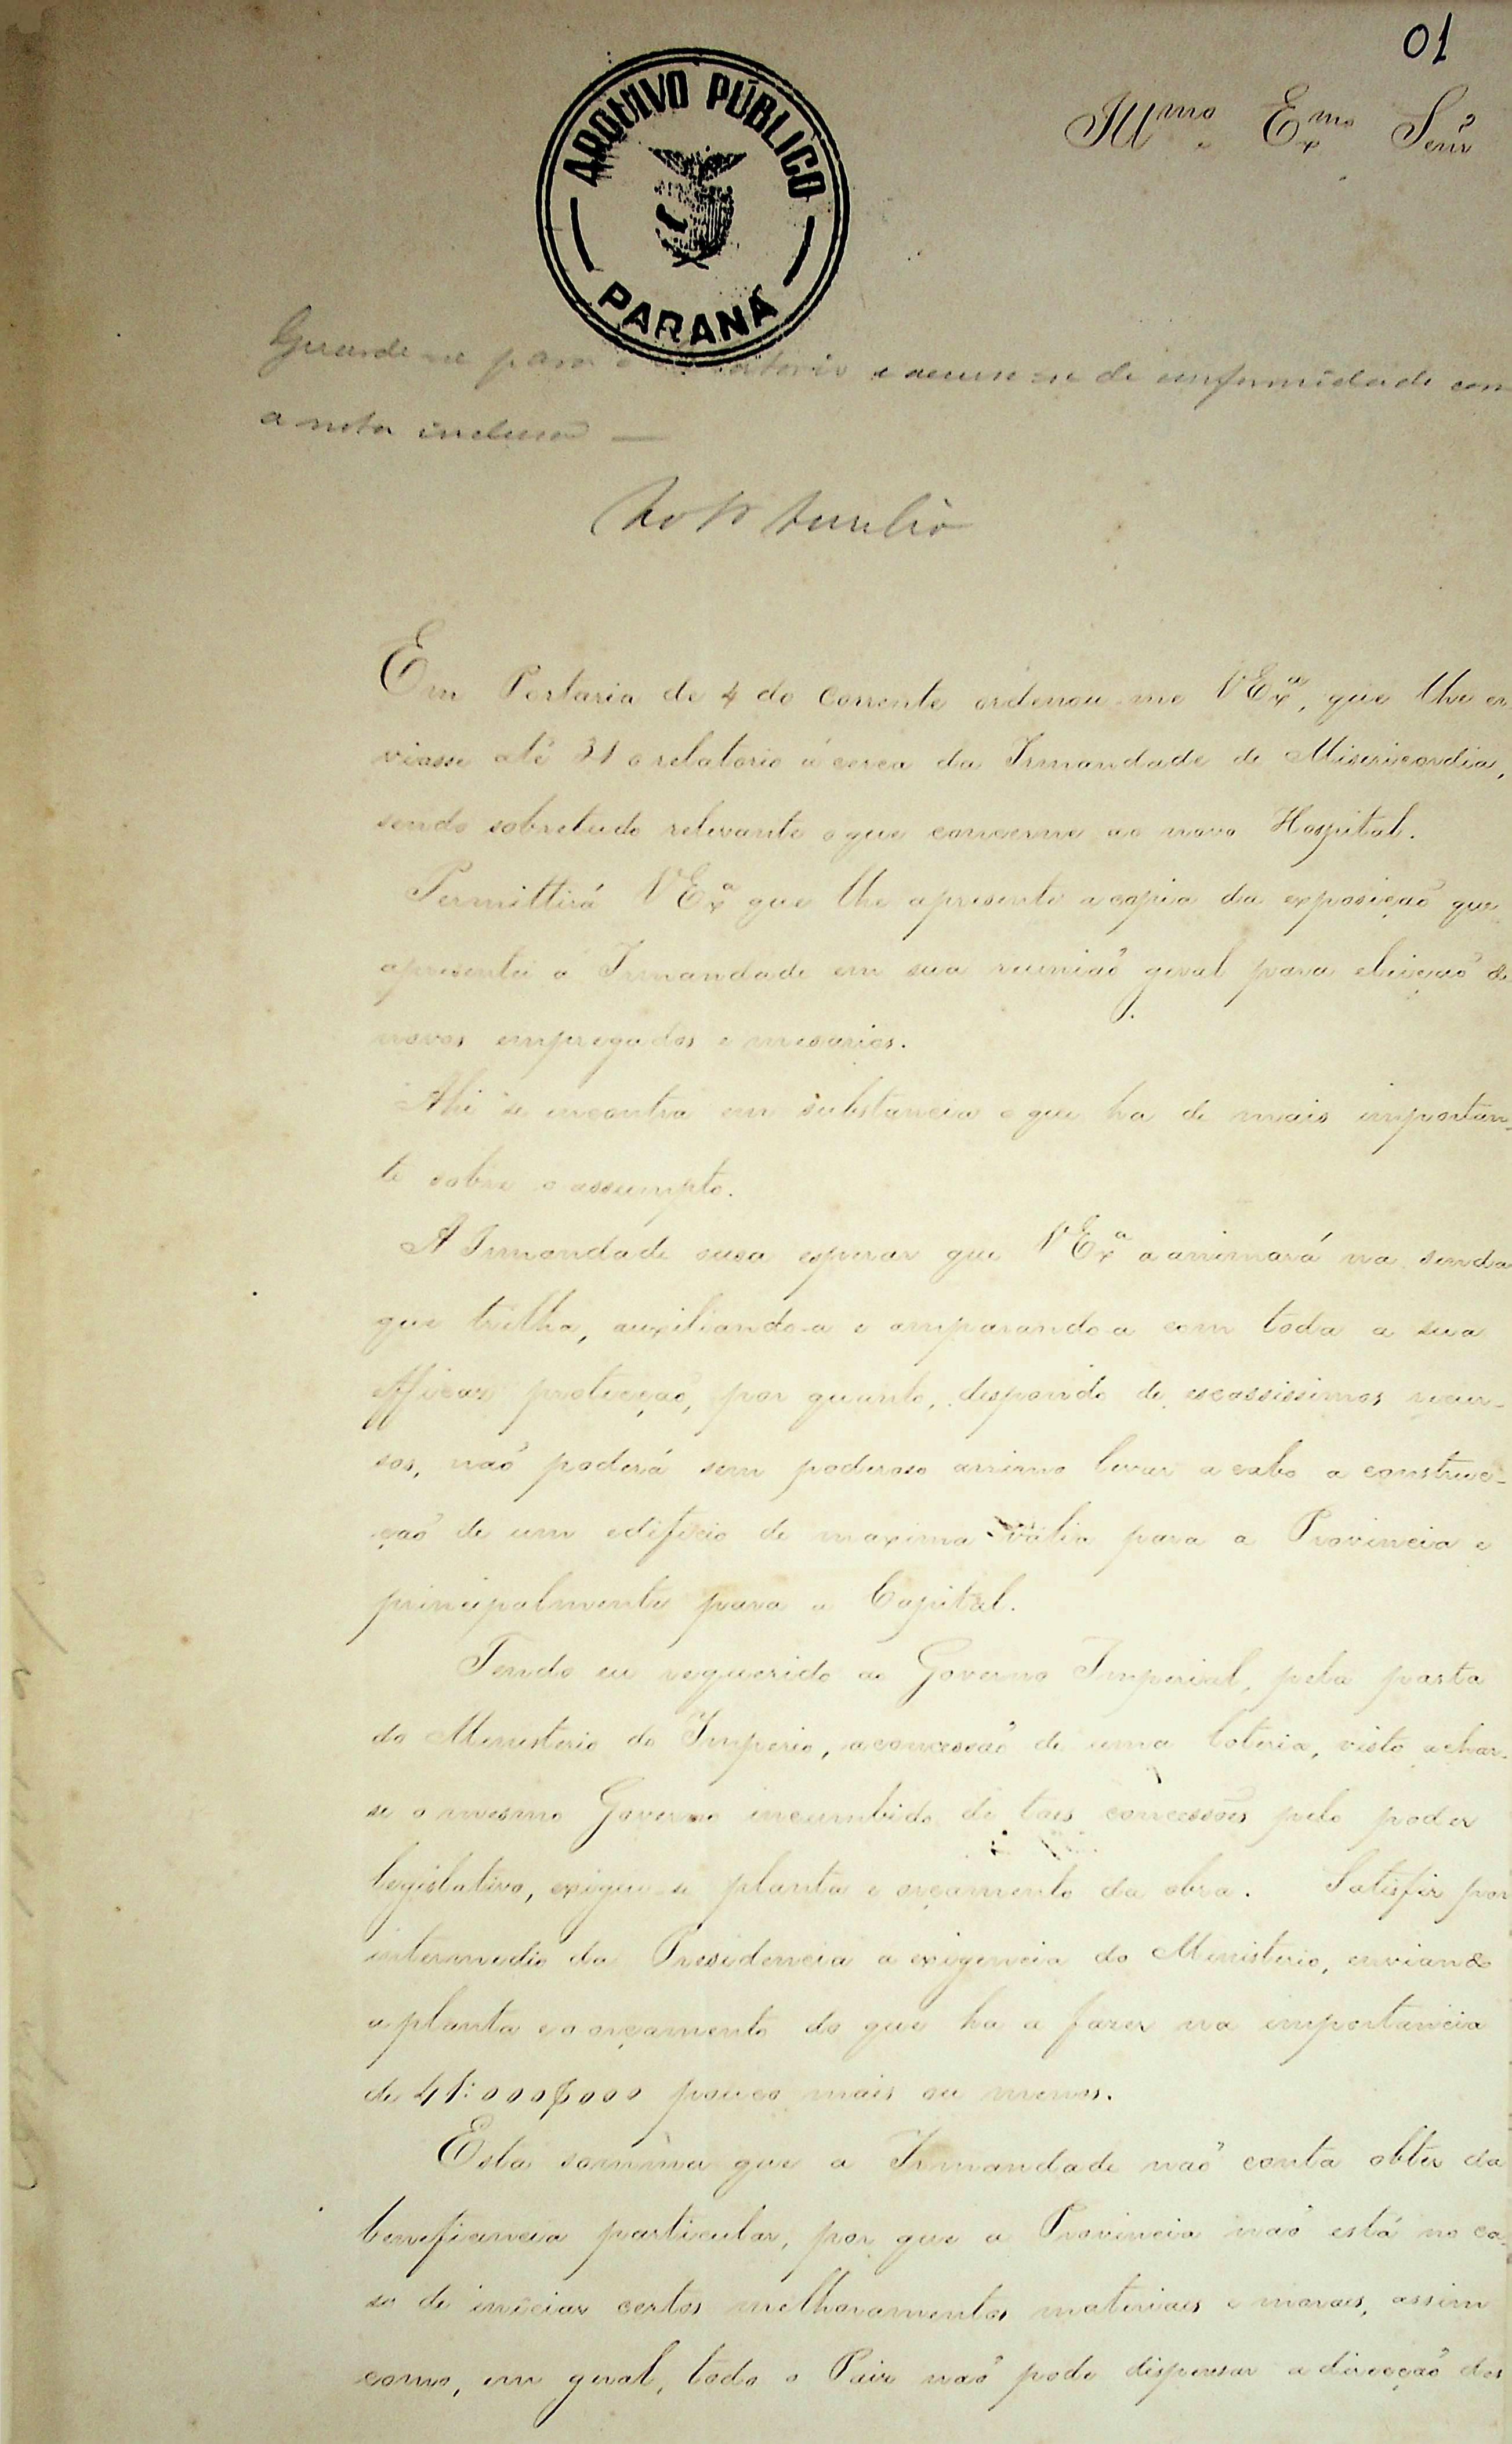 01
Illmo e Exmo Senr
ARQUIVO PÚBLICO
PARANÁ
Guarde-se para o relatorio e accuse-se de conformidade com
a nota inclusa —
Em Portaria de 4 do corrente ordenou-me VExa, que lhe en
viasse até 31 o relatorio á cerca da Irmandade de Misericordia,
sendo sobretudo relevante o que concerne ao novo Hospital.
Permittirá VExa que lhe apresente a copia da exposição que
apresentei á Irmandade em sua reunião geral para eleição de
novos empregados e mesarios.
Ahi se encontra em substancia o que ha de mais importan-
te sobre o assumpto.
A Irmandade ousa esperar que VExa a animará na senda
que trilha, auxiliando-a e amparando-a com toda a sua
efficaz protecção, por quanto, dispondo de escassissimos recur-
sos, não poderá sem poderoso arrimo levar a cabo a construc-
ção de um edificio de maxima valia para a Provincia e
principalmente para a Capital.
Tendo eu requerido ao Governo Imperial, pela pasta
do Ministerio do Imperio, a concessão de uma loteria, visto achar-
se o mesmo Governo incumbido de taes concessões pelo poder
legislativo, exigiu-se planta e orçamento da obra. Satisfiz por
intermedio da Presidencia a exigencia do Ministerio, enviando
a planta e o orçamento do que ha a fazer na importancia
de 41:000$000 pouco mais ou menos.
Esta somma que a Irmandade não conta obter da
beneficencia particular, por que a Provincia não está no ca-
so de iniciar certos melhoramentos materiaes e moraes, assim
como, em geral, todo o Paiz não pode dispensar a direcção dos